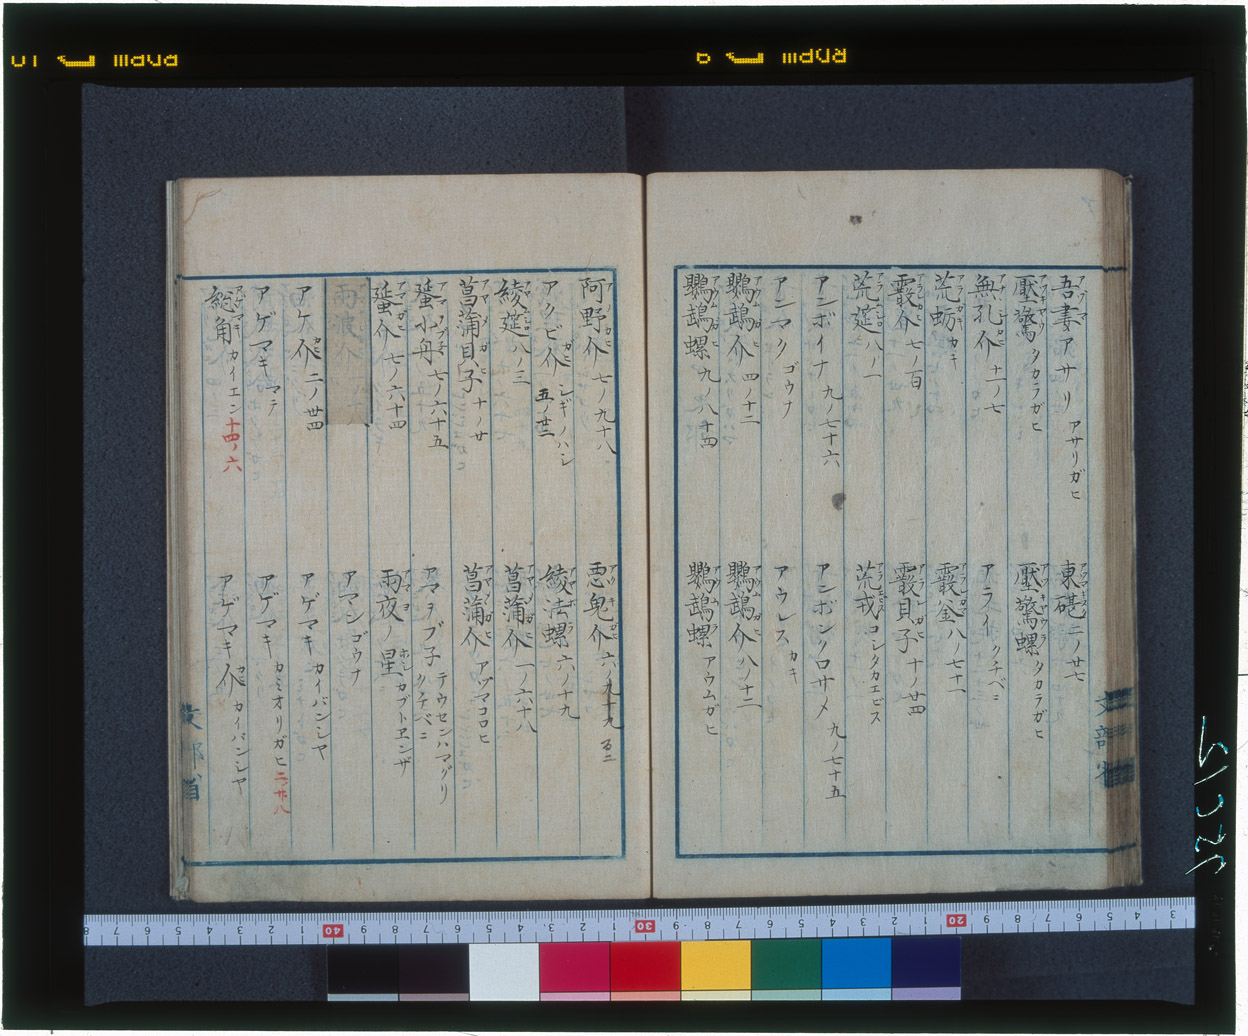 吾妻アサリ アサリガヒ
壓驚 タカラガヒ
無孔介 十一ノ七
荒蛎 カキ
霰介 七ノ百
荒莚 八ノ一
アンボイナ 九ノ七十六
アンマク ゴウナ
鸚鵡介 四ノ十二
鸚鵡螺 九ノ八十四
東碪 二ノ廿七
壓驚螺 タカラガヒ
アライ クチベニ
霰釜 八ノ七十一
霰貝子 十ノ廿四
荒戎 コシタカエビス
アンボンクロサメ 九ノ七十五
アウレス カキ
鸚鵡介 八ノ十二
鸚鵡螺 アウムガヒ
阿野介 七ノ九十八
アクビ介 シギノハシ
綾莚 八ノ三
菖蒲貝子 十ノ廿
蜑小舟 七ノ六十五
蜑介 七ノ六十四
アケ介 二ノ卅四
アゲマキ マテ
総角 カイエン 十四ノ六
悪鬼介 六ノ九十九
綾法螺 六ノ十九
菖蒲介 一ノ六十八
菖蒲介 アヅマコロヒ
アマヲブ子 テウセンハマグリ クチベニ
雨夜ノ星 カブトエンザ
アマンゴウナ
アゲマキ カイバンシヤ
アゲマキ カミオリガヒ 二ノ廿八
アゲマキ介 カイバンシヤ
文部省